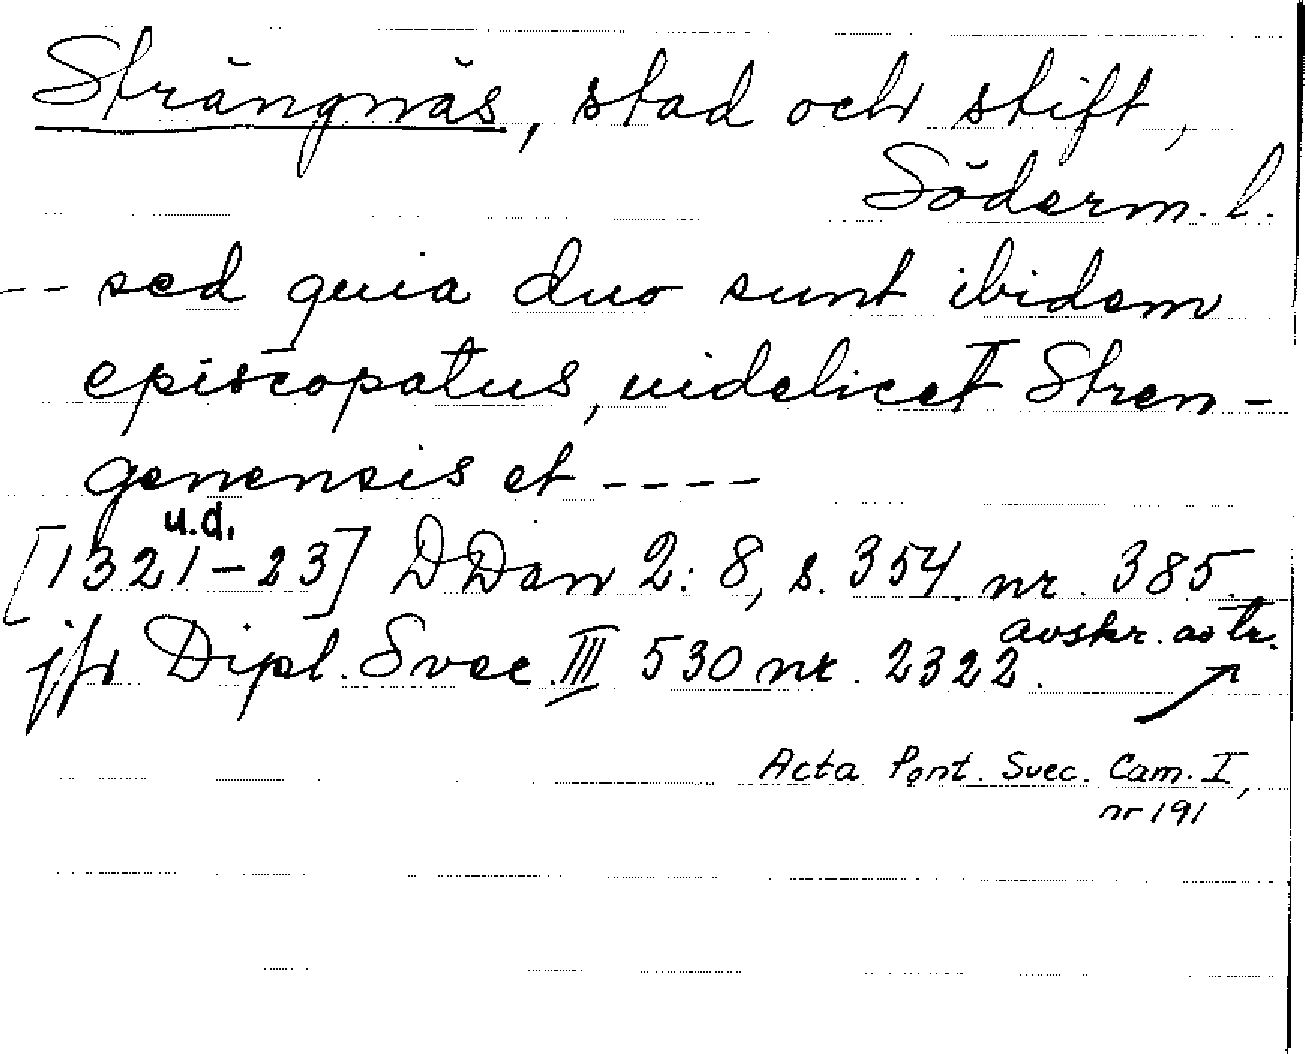 Strängnäs, stad och stift,
Söderm. l.
-- sed quia duo sunt ibidem
episcopatus, uidelicet Stren-
genensis et ----
u.d.
[1321-23] DDan 2:8, s. 354 nr. 385.
avskr. av tr.
jfr Dipl. Svec. III 530 nr. 2322.
Acta Pont. Svec. Cam. I,
nr 191